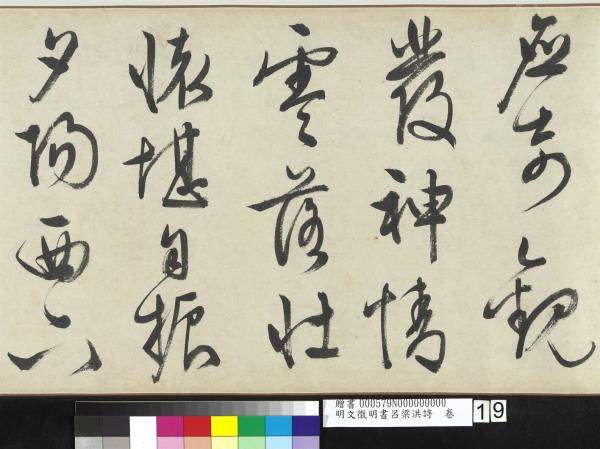 奇觀
發神情
零落壯
懷堪自振
夕陽西下
贈書 000579N000000000
明文徵明書呂梁洪詩 卷
19